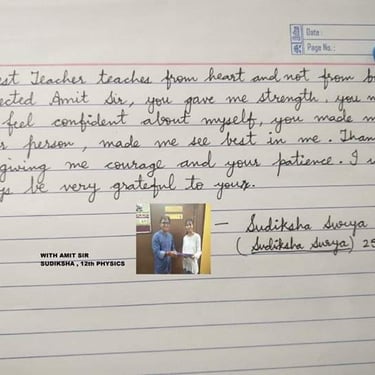 Date:
Page No.:
est Teacher teaches from heart and not from b
ected Amit Sir, you gave me strength, you m
feel confident about myself, you made m
r person, made me see best in me. Than
giving me courage and your patience. I w
ys be very grateful to your.
- Sudiksha Surya
(Sudiksha Surya) 25
WITH AMIT SIR
SUDIKSHA , 12th PHYSICS